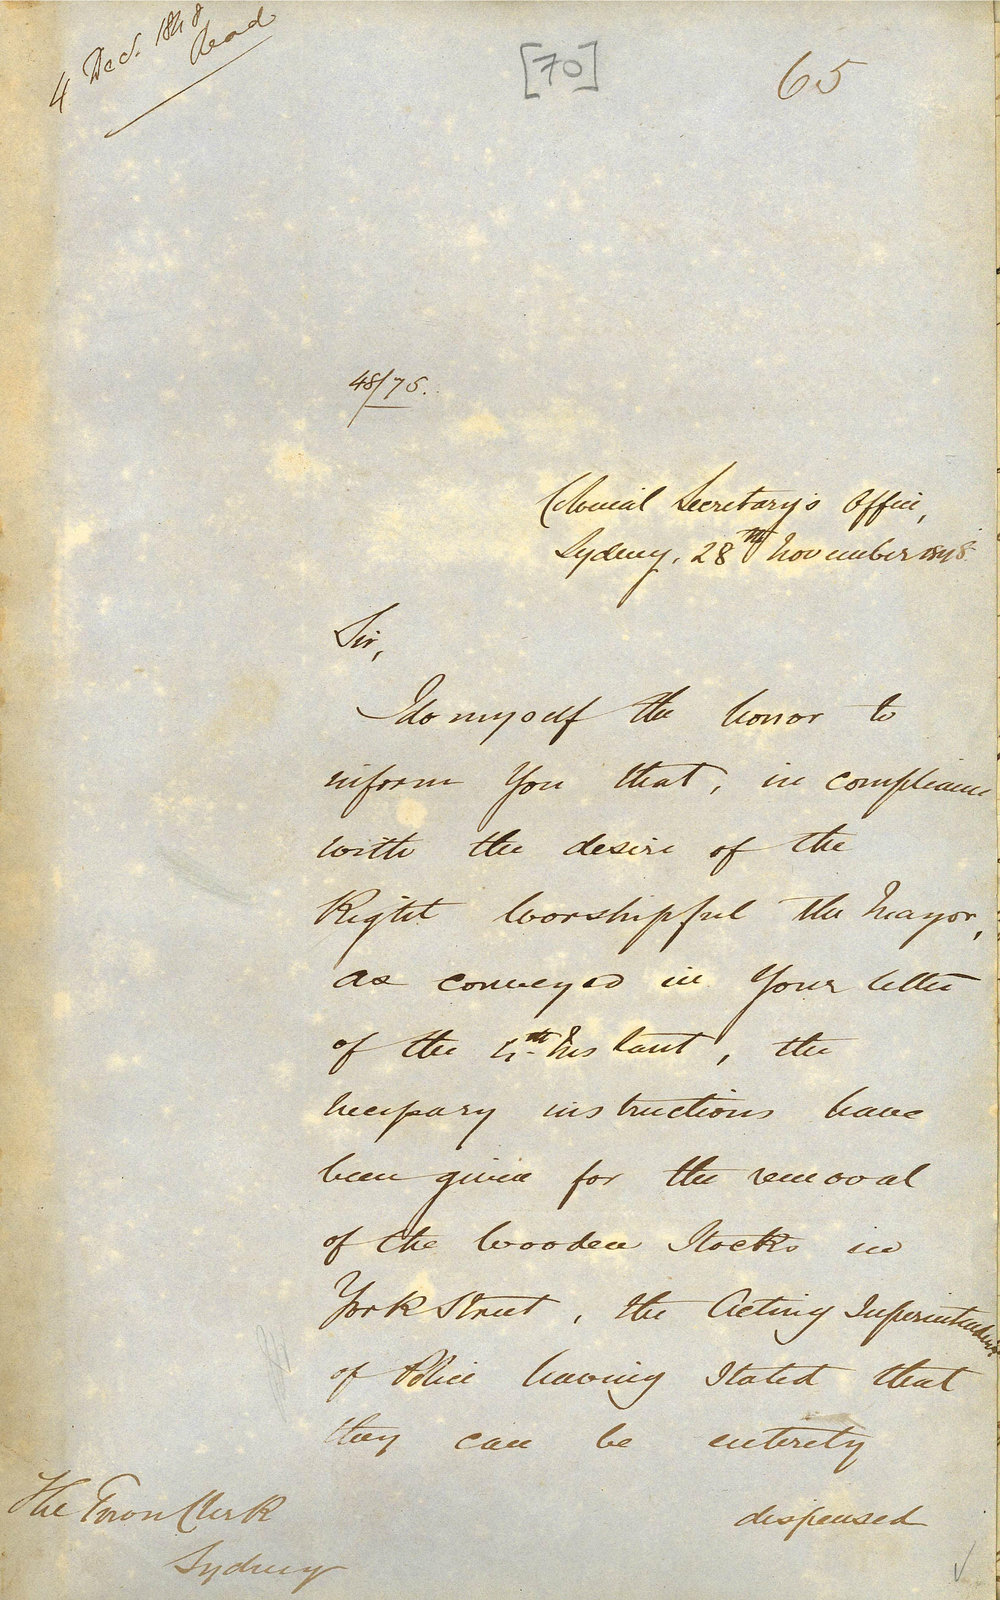 4 Decr. 1848
Read
[70]
65
48/75.
Colonial Secretary's Office,
Sydney, 28th November 1848
Sir,
I do myself the honor to
inform You that, in compliance
with the desire of the
Right Worshipful the Mayor,
as conveyed in Your letter
of the 4th Instant, the
necessary instructions have
been given for the removal
of the Wooden Stocks in
York Street, the Acting Superintendent
of Police having Stated that
they can be entirely
dispensed
The Town Clerk
Sydney